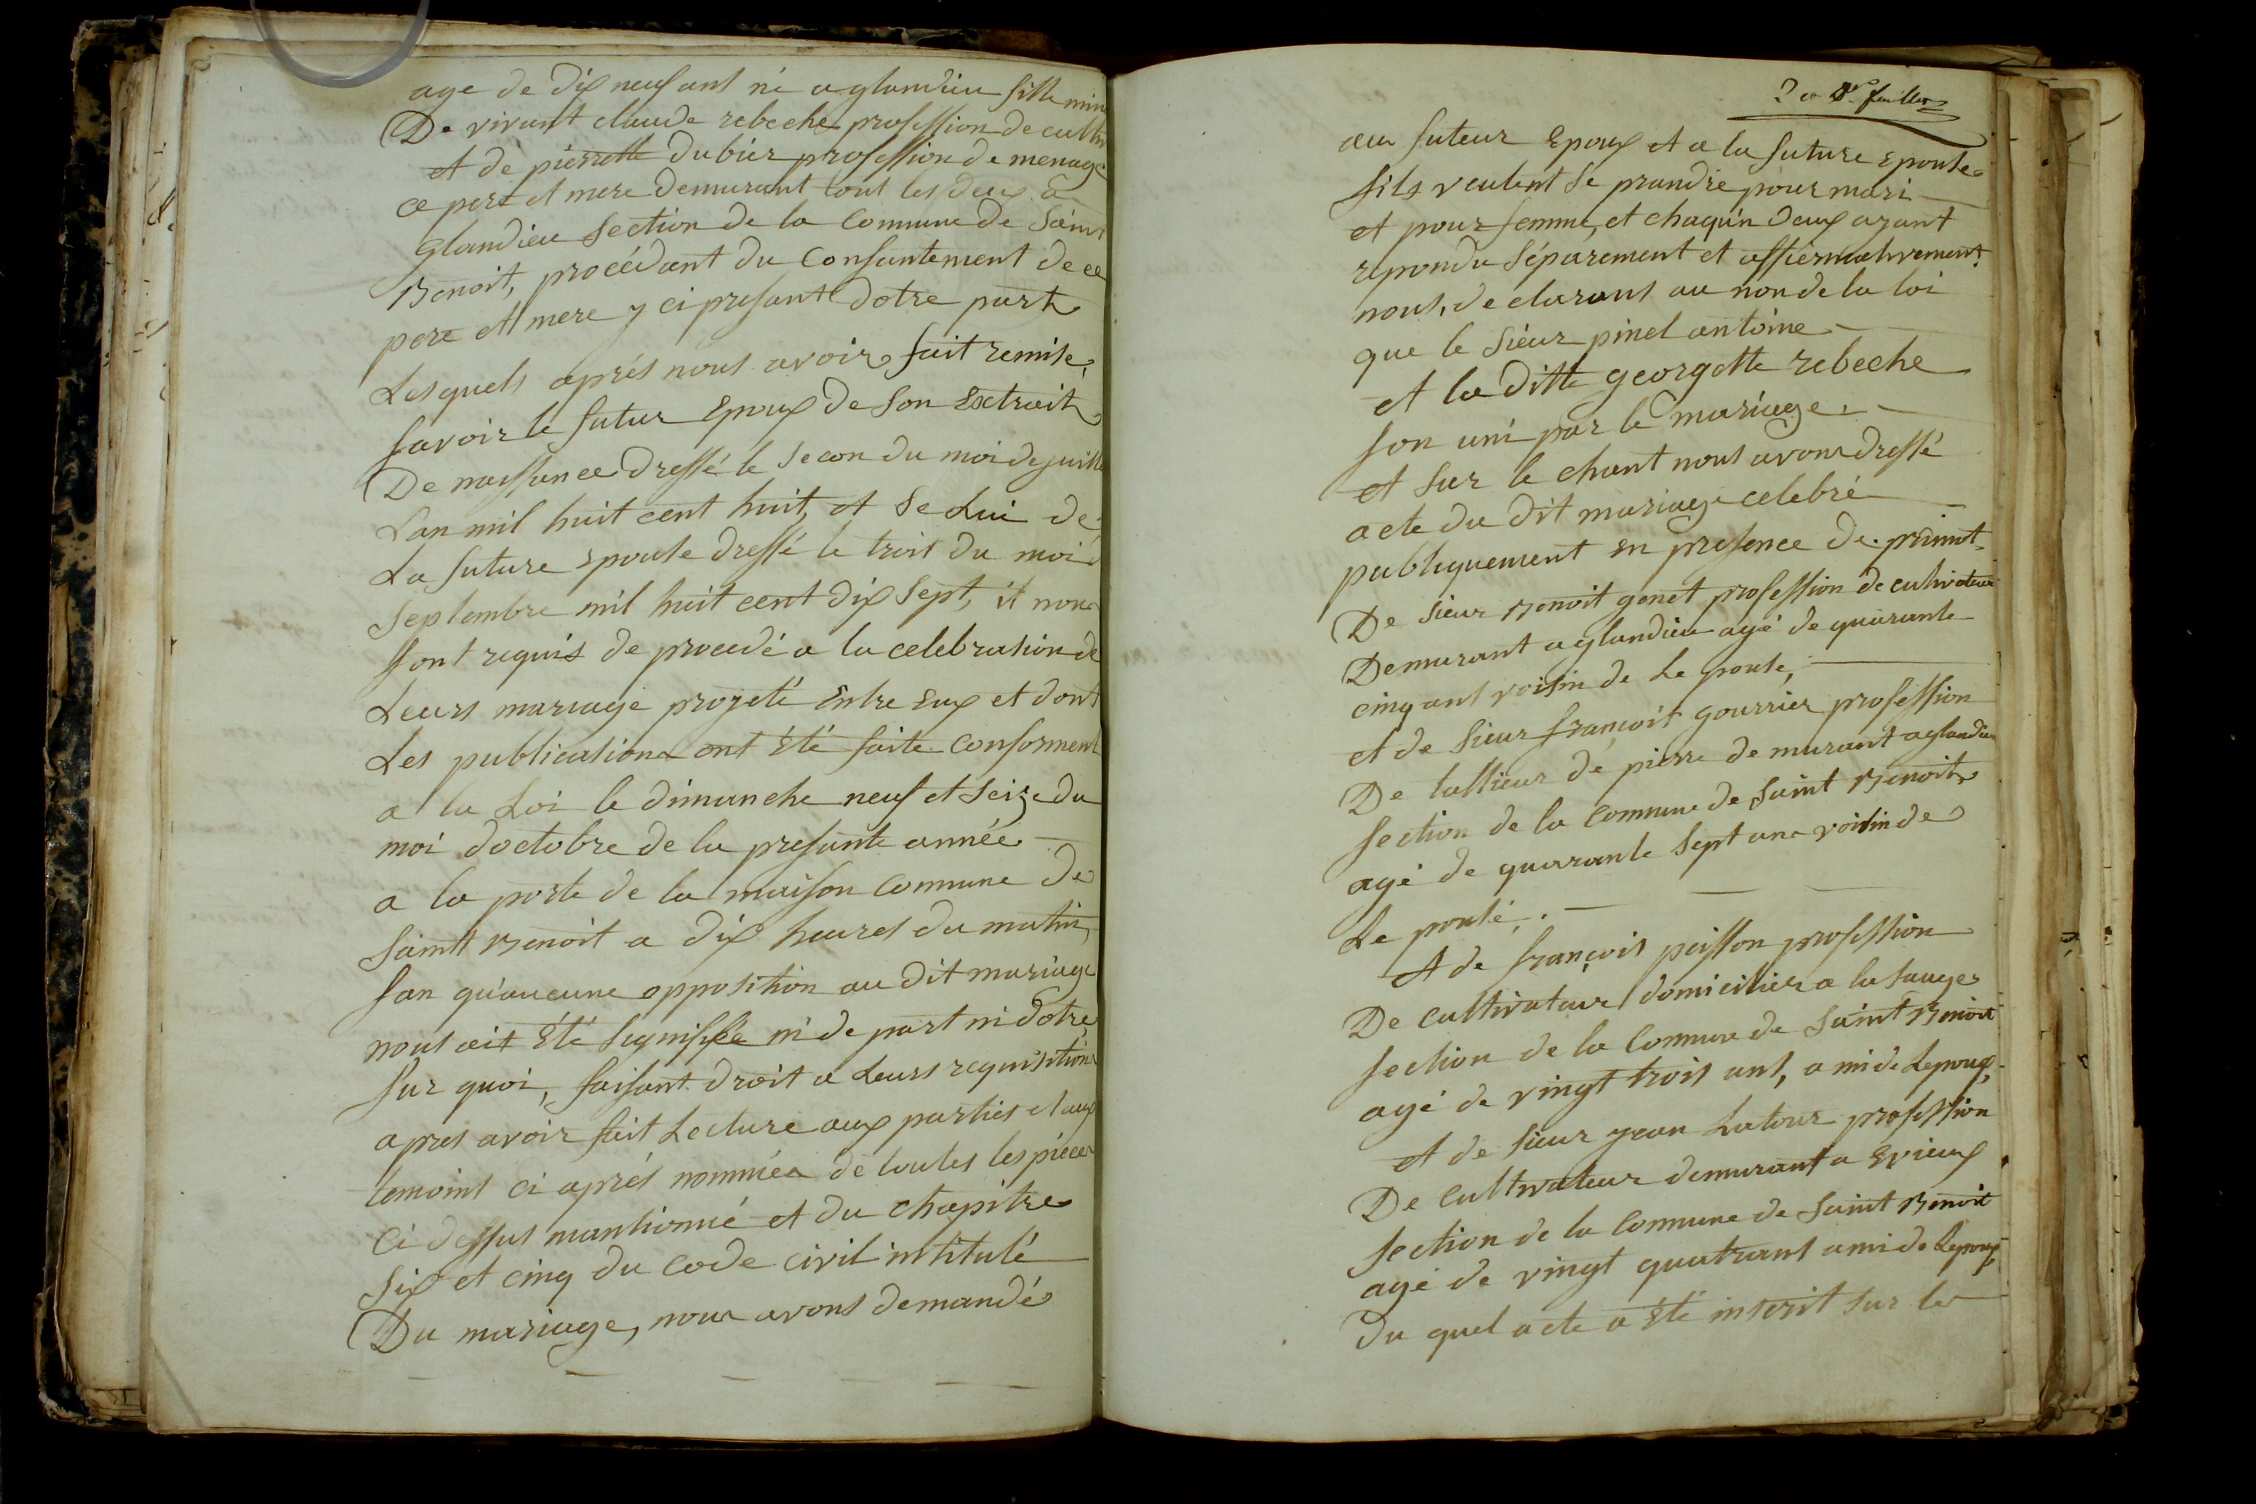 age de dix neuf ans né a glandieu fille min
De vivant claude rebeche profession de cultiv
et de pierrette dubier profession de menage
ce pere et mere demurant tout les deux a
glandieu section de la commune de Saint
Benoit, procédant du consantement de ce
pere et mere y ci presant dotre part
Lesquels aprés nous avoir fait remise,
savoir le futur Epoux de son Extrait
De naissance dressé le secon du moi de juille
Lan mil huit cent huit, et se Lui de
La future Epouse dressé le trois du moi d
Septembre mil huit cent dix sept, il nous
sont requis de procedé a la celebration de
Leurs mariage projeté Entre Eux et dont
Les publications ont été faite conforment
a la Loi le dimanche neuf et seize du
moi doctobre de la presante année
a la porte de la maison commune de
saintt Benoit a dix heures du matin,
san quaucune opposition au dit mariage
nous ait Eté signifiée ni de part ni dotre
sur quoi, faisant droit a Leurs requisitions
apres avoir fait Lecture aux parties et aux
temoins ci aprés nommés de toutes les pièces
ci dessus mantionné et du chapitre
six et cinq du code civil intitulé
Du mariage, nous avons demandé
feuillet
au futeur Epoux et a la future Epouse
sils veulent se prandre pour mari
et pour femme, et chaquin deux ayant
repondu séparement et affiermativement
nous, declarans au non de la loi
que le sieur pinel antoine
et la ditte georgette rebeche
son uni par le mariage
et sur le chant nous avons dressé
acte du dit mariage celebré
publiquement en presence de
De sieur Benoit genet profession de cultivateur
Demurant a glandieu agé de quarante
cinq ans voisin de Le pouse,
et de sieur françois gourrier profession
De tallieur de pierre demurant a glandieu
section de la commune de saint Benoit
agé de quarante sept ans voisin de
Le pousé,
et de françois peisson profession
De cultivateur domicilier a la sauge
section de la commune de saint Benoit
agé de vingt trois ans, ami de Lepoux,
et de sieur jean Latour profession
De cultivateur demurant a Evieux
section de la commune de saint Benoit
agé de vingt quatrans ami de Lepoux,
du quel acte a été inscrit sur les